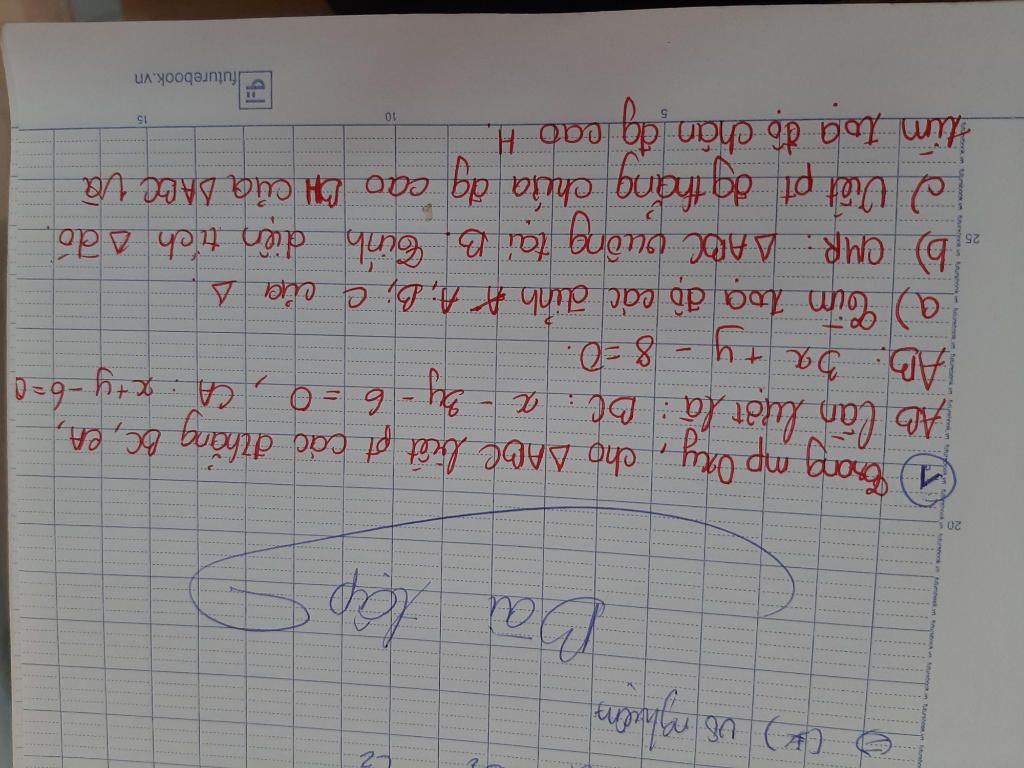 ⇒ (*) vô nghiệm
Bài tập
20
① Trong mp Oxy, cho ΔABC biết pt các đthẳng BC, CA,
AB lần lượt là: BC: x - 3y - 6 = 0, CA: x+y-6=0
AB: 3x + y - 8 = 0.
a) Tìm toạ độ các đỉnh A, B, C của Δ.
b) CMR: ΔABC vuông tại B. Tính diện tích Δ đó.
25
c) Viết pt đg thẳng chứa đg cao BH của ΔABC và
tìm toạ độ chân đg cao H.
5 10 15
futurebook.vn